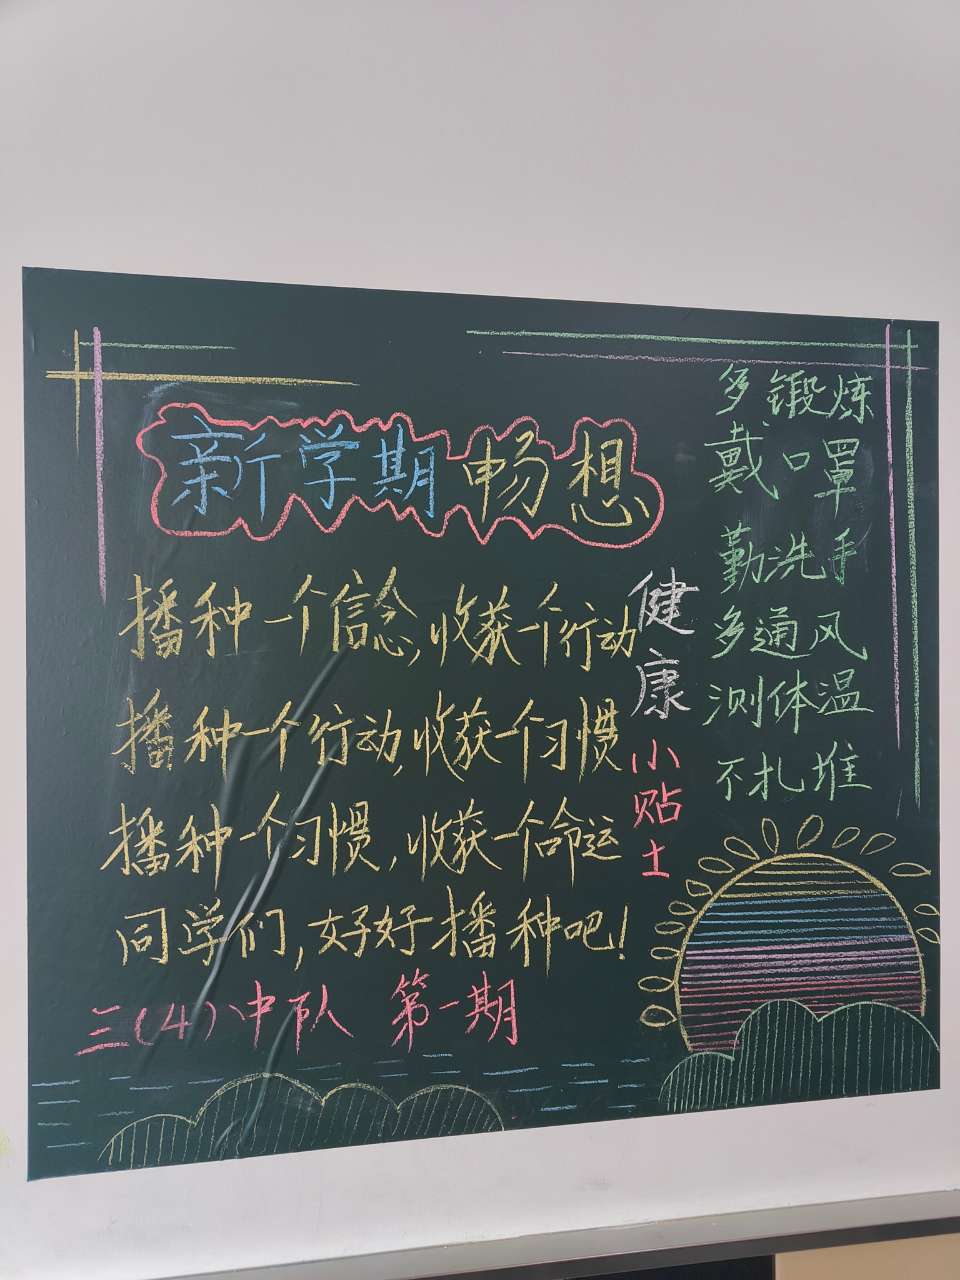 新学期畅想
播种一个信念,收获一个行动
播种一个行动,收获一个习惯
播种一个习惯,收获一个命运
同学们,好好播种吧!
三(4)中队 第一期
健康小贴士
多锻炼
戴口罩
勤洗手
多通风
测体温
不扎堆